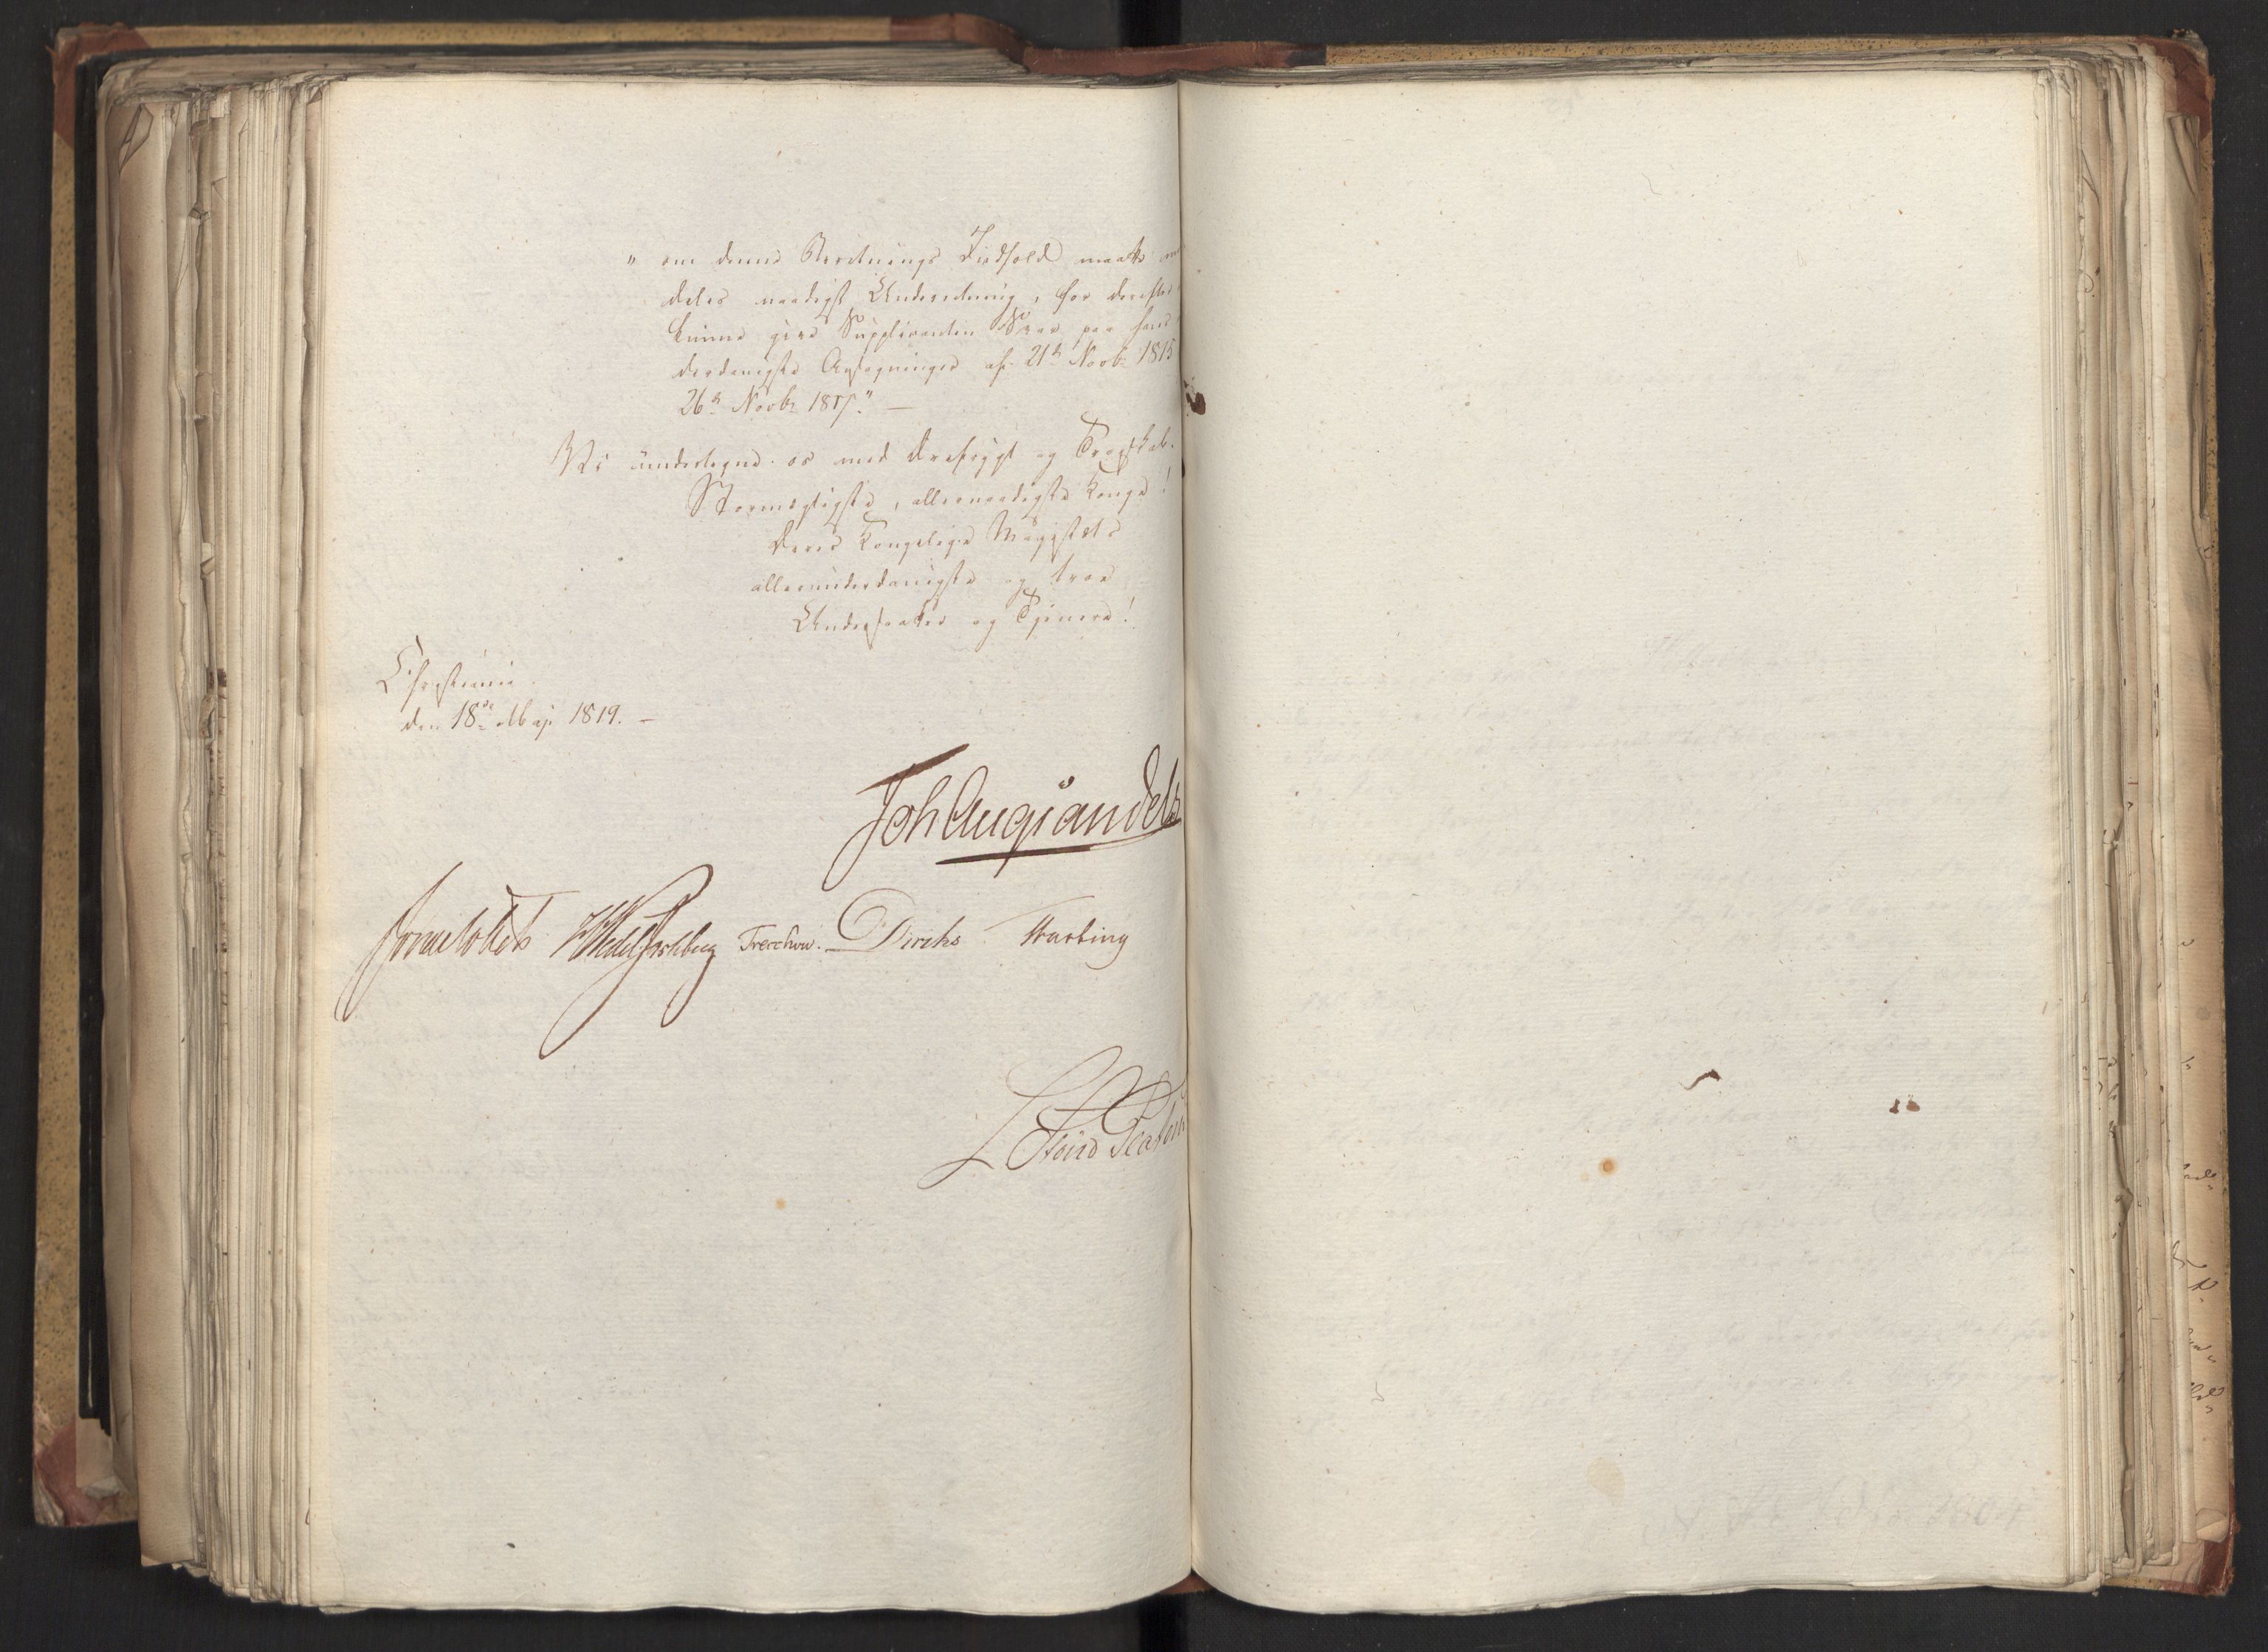 " om denne Beretnings Indhold maatte
deles naadigst Underretning, for derefter
kunne give Supplicanten Svar paa hans
derdanigste Ansøgninger af 21de Novbr 1815
26de Novbr 1817." —
Vi undertegne os med Ærefrygt og Troeskab.
Stormægtigste, allernaadigste Konge!
Deres Kongelige Majestæts
allerunderdanigste og troe
Undersaatter og Tjenere!
Christiania
den 18de Maji 1819. —
Joh Aug Sandels
Sommerhielm HWedelJarlsberg Treschow. Diriks Fasting